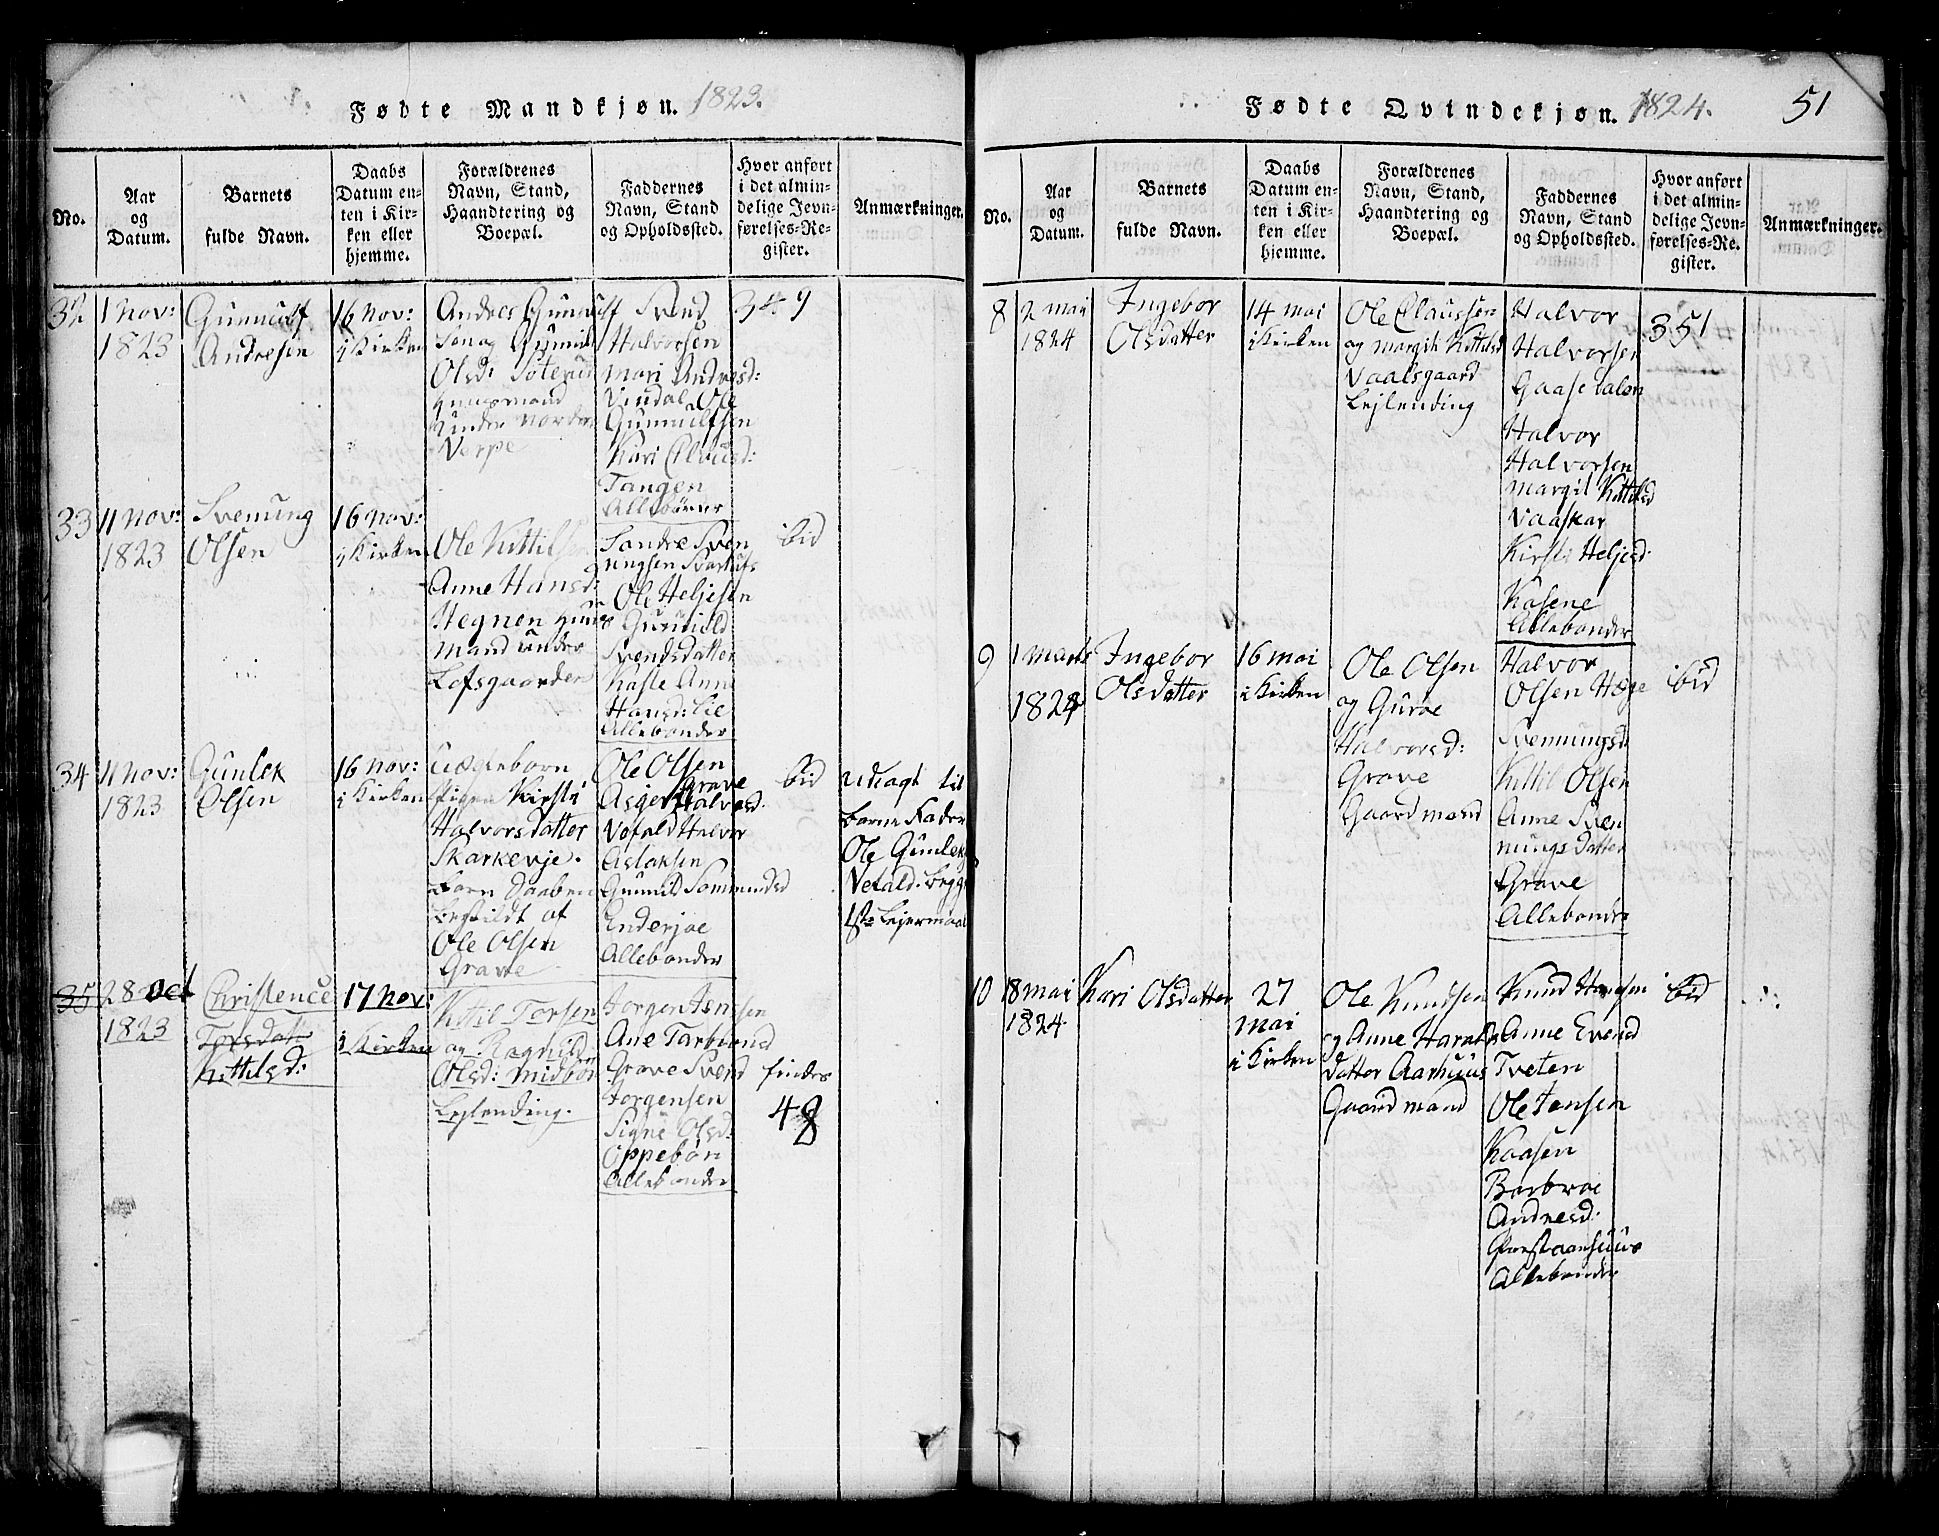 Fødte Mandkjøn. 1823.
No.
Aar
og
Datum.
Barnets
fulde Navn.
Daabs
Datum en-
ten i Kir-
ken eller
hjemme.
Forældrenes
Navn, Stand,
Haandtering og
Boepæl.
Faddernes
Navn, Stand
og Opholdssted.
Hvor anført
i det almin-
delige Jevn-
førelses-Re-
gister.
Anmærkninger.
32
1 Nov:
1823
Gunnulf
Andresen
16 Nov:
i Kirken
Andres Gunnulf
Søn og Gunild
Olsd:
Huusmand
under Nordre
Verpe
Svend
Halvorsen
Mari Andresd:
Vindal Ole
Gunnulfsen
Kari Clausd:
Tangen
Allebönder
349
33
11 Nov:
1823
Svenung
Olsen
16 Nov:
i Kirken
Ole Kittilsen
Anne Hansd:
Hegnen Huus
Mand under
Lofsgaarden
Sondre Sven
ungsen
Ole Heljesen
Gunnild
Svendsdatter
Kaste Anne
Hansd: Lie
Allebonder
ibid
34
11 Nov:
1823
Gunlek
Olsen
16 Nov:
i Kirken
Uægteborn
Pigen Kirsti
Halvorsdatter
Skarkevje.
Barn Daaben
bestildt af
Ole Olsen
Grave
Ole Olsen
Grave
Asgerd Halvorsd.
Vefald Halvor
Aslaksen
Gunild Sommundsd
Enderjoe
Allebonder
ibid
udlagt til
barne Fader
Ole Gunleks
Vefald. begge
1ste Lejermaal
35
28 Oct
1823
Christence
Torsdatt
Kittilsd:
17 Nov:
i Kirken
Kittil Torsen
og Ragnild
Olsd: Midbøe
Lejlending.
Jorgen Jensen
Ane Tarbiørnsd
Grave Svend
Jorgensen
Signe Olsd:
Oppebøn
Allebonder
findes
48
Fødte Qvindekjøn. 1824.
51
No.
Aar
og
Datum.
Barnets
fulde Navn.
Daabs
Datum en-
ten i Kir-
ken eller
hjemme.
Forældrenes
Navn, Stand,
Haandtering og
Boepæl.
Faddernes
Navn, Stand
og Opholdssted.
Hvor anført
i det almin-
delige Jevn-
førelses-Re-
gister.
Anmærkninger.
8
2 mai
1824
Ingebor
Olsdatter
14 mai
i Kirken
Ole Claussen
og Margit Kittilsd
Vaalsgaard
Lejlending
Halvor
Halvorsen
Gaasedalen
Halvor
Halvorsen
Margit Kittilsd
Vaaskar
Kirsti Heljesd.
Kasene
Allebonder
351
9
1 Marts
1824
Ingebor
Olsdatter
16 mai
i Kirken
Ole Olsen
og Guroe
Halvorsd:
Grave
Gaardmand
Halvor
Olsen Hæge
Svennungsd
Kittil Olsen
Anne Sven
nungs Datter
Grave
Allebonder
ibid
10
18 mai
1824
Kari Olsdatter
27
mai
i Kirken
Ole Knudsen
og Anne Haralds
datter Aarhuus
Gaardmand
Knud Hansen
Anne Evensd
Tveten
Ole Jansen
Kaasen
Barbroe
Andresd:
Allebonder
ibid